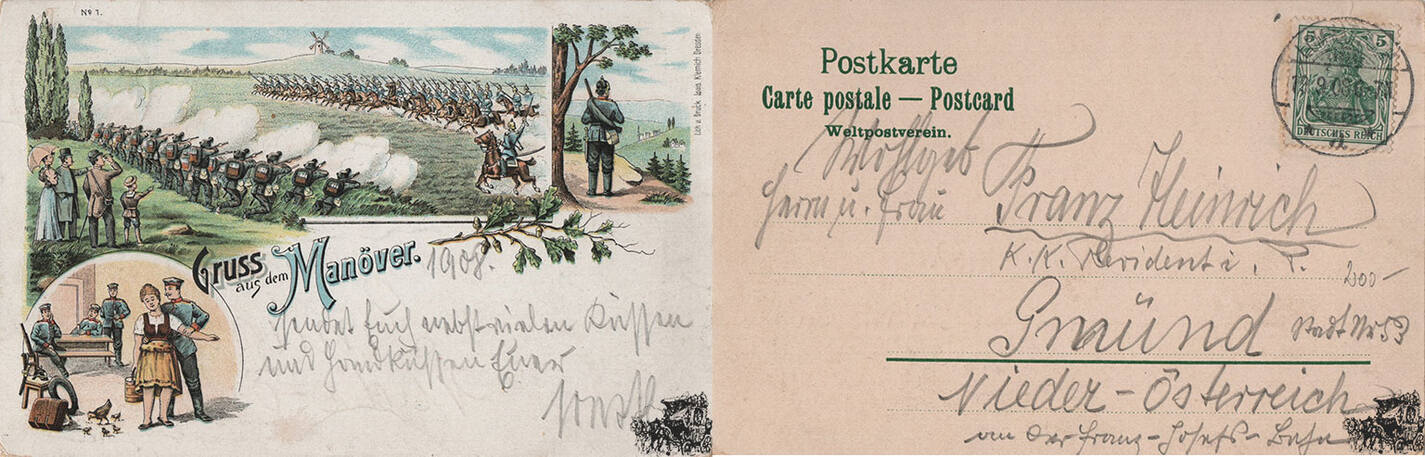 No 1.
Lith. u. Druck. Louis Klemich Dresden
Gruss
aus dem Manöver.
1908.
sendet Euch nebst vielen Küssen
und Handküssen Euer
Postkarte
Carte postale — Postcard
Weltpostverein.
5 5
DEUTSCHES REICH
Wohlgeb
Herrn u. Frau Franz Heinrich
K. K. Revident i. R.
200-
Gmünd Stadt Nr 53
Nieder-Österreich
an der Franz-Josefs-Bahn